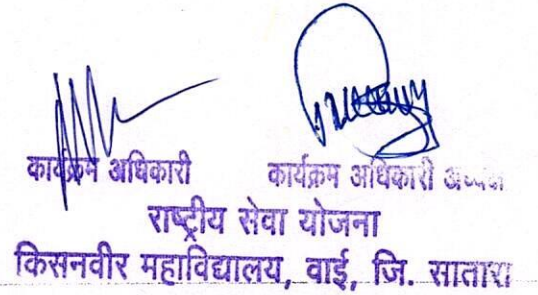 कार्यक्रम अधिकारी कार्यक्रम अधिकारी
राष्ट्रीय सेवा योजना
किसनवीर महाविद्यालय, वाई, जि. सातारा